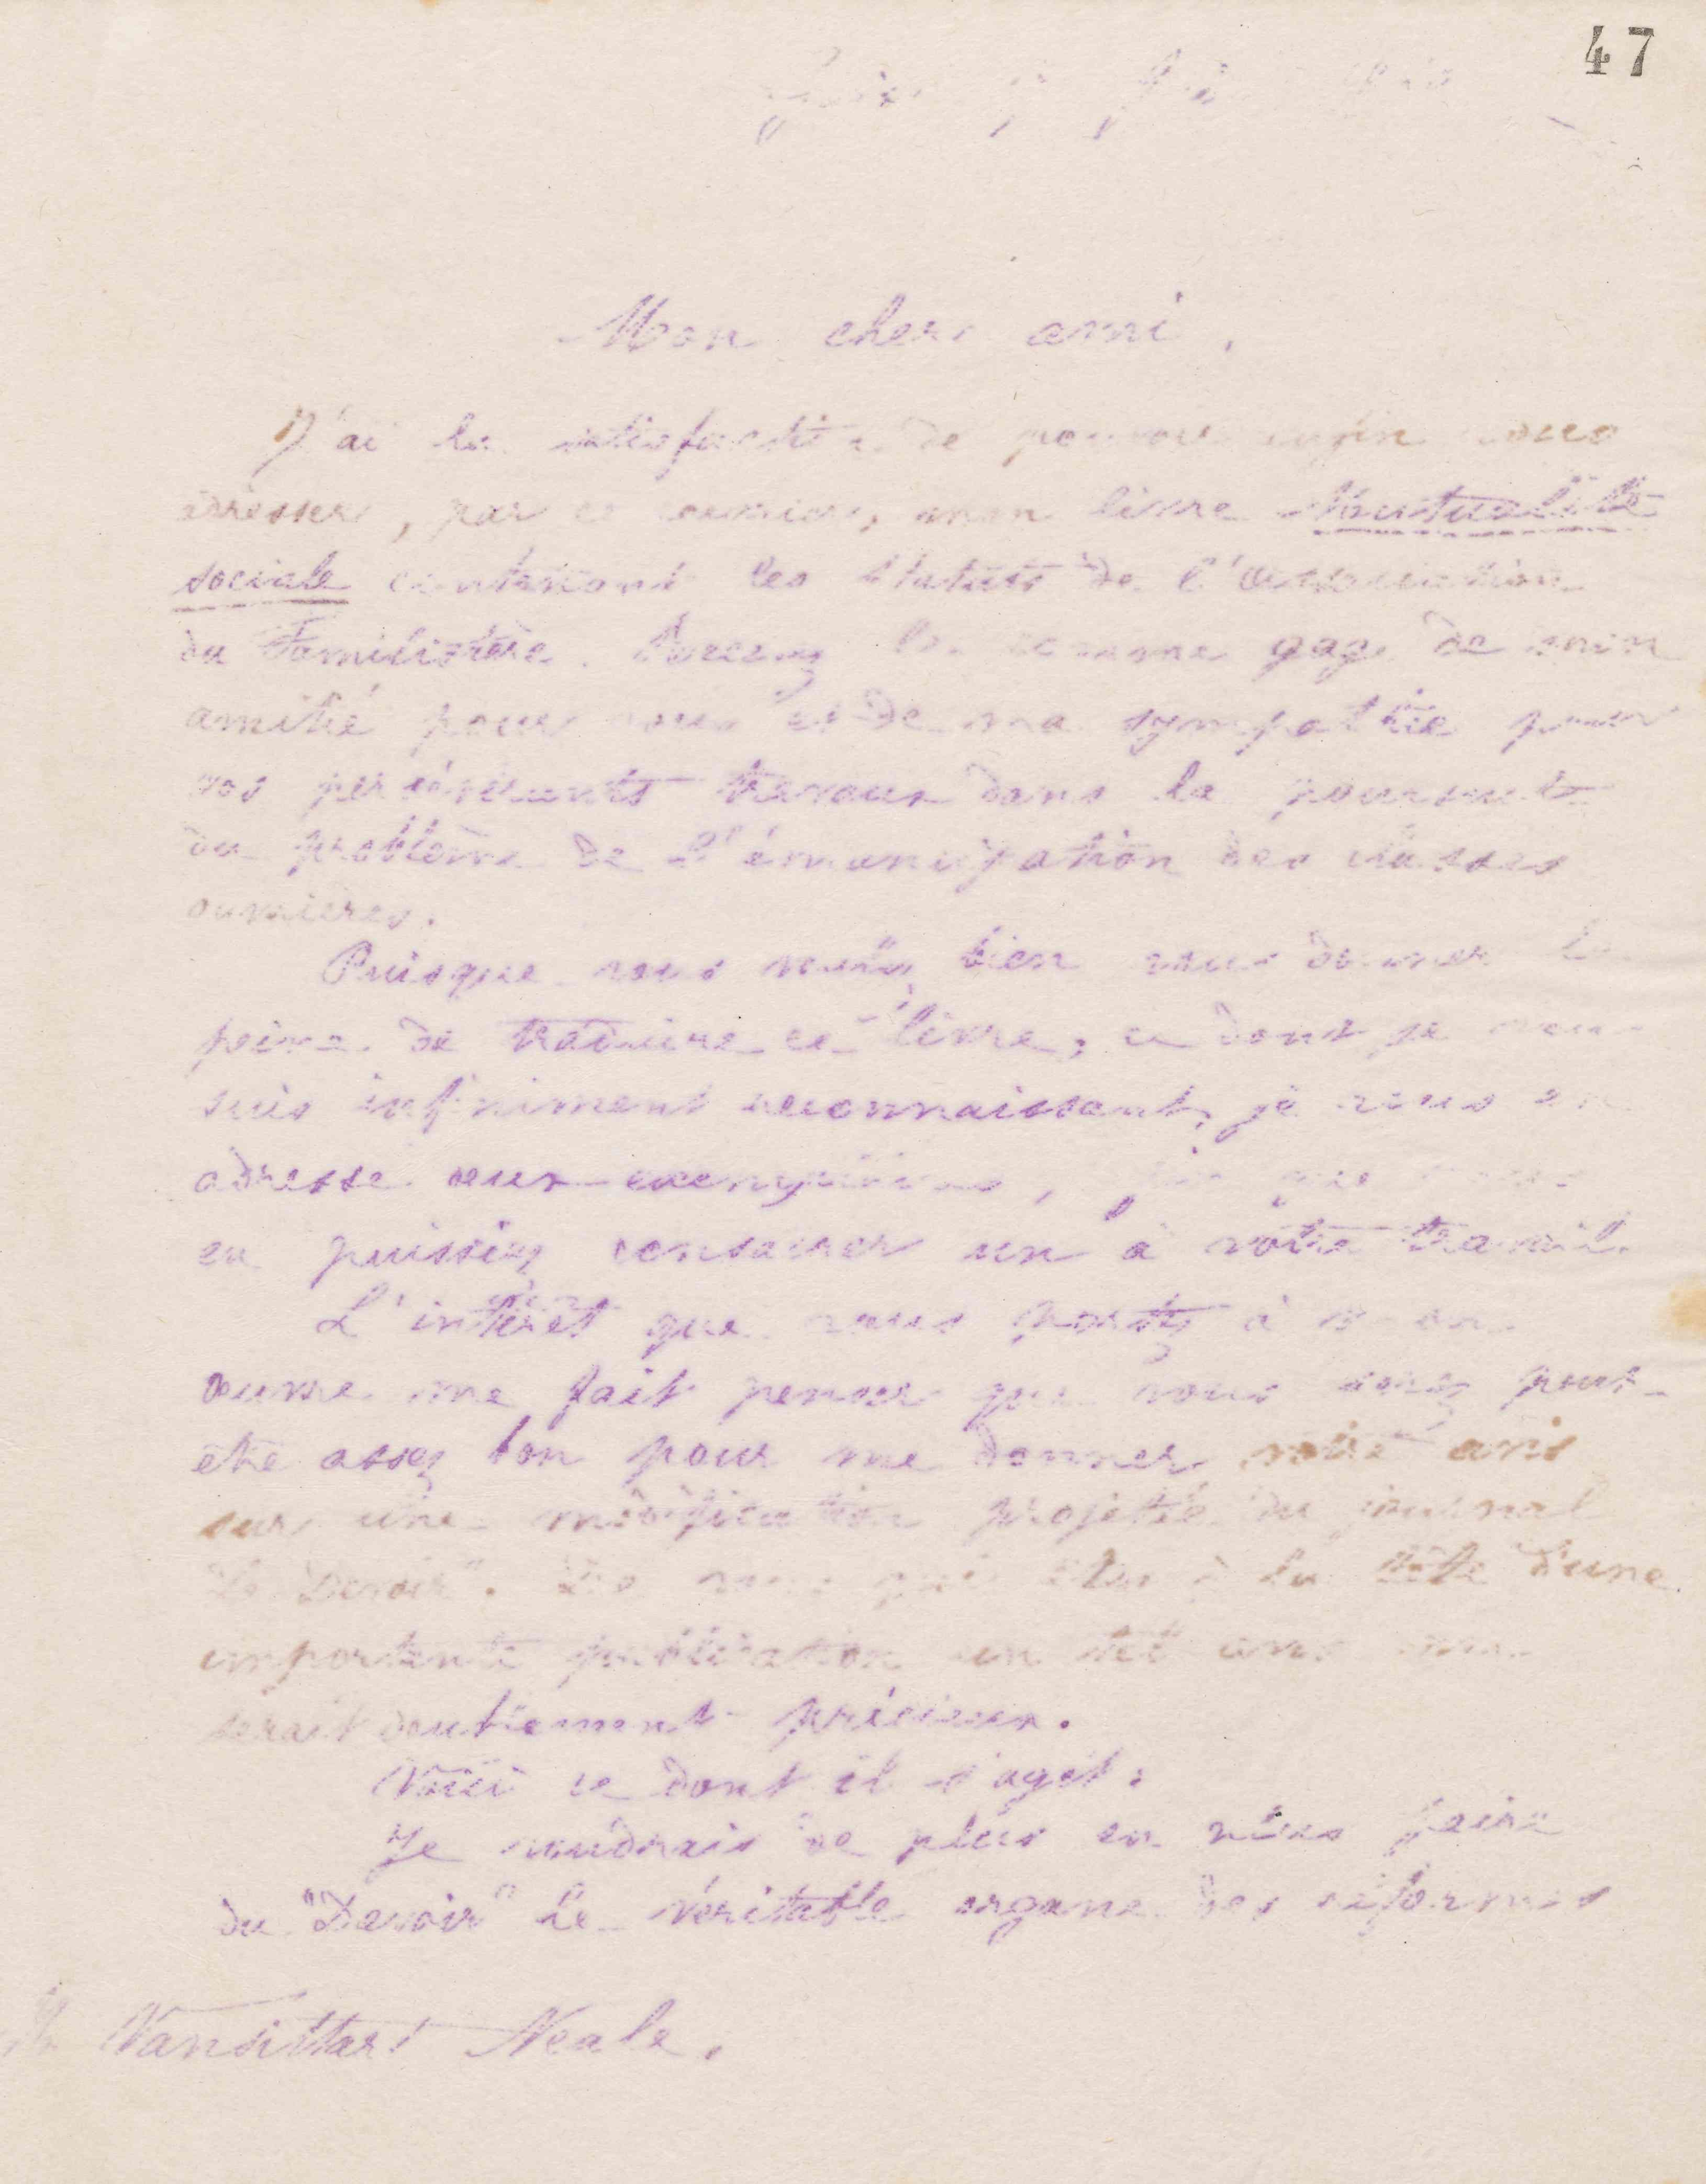 47
Mon cher ami,
J'ai la satisfaction de pouvoir enfin vous
adresser, par ce courrier, mon livre Mutualité
sociale contenant les statuts de l'association
du Familistère. Recevez le comme gage de mon
amitié pour vous et de ma sympathie pour
vos persévérants travaux dans la poursuite
du problème de l'émancipation des classes
ouvrières.
Puisque vous voulez bien vous donner la
peine de traduire ce livre, ce dont je vous
suis infiniment reconnaissant, je vous en
adresse deux exemplaires, que vous
en puissiez consacrer un à votre travail.
L'intérêt que vous portez à mon
œuvre me fait penser que vous serez peut-
être assez bon pour me donner votre avis
sur une modification projetée du journal
"Le Devoir". De vous qui êtes à la tête d'une
importante publication un tel avis me
serait doublement précieux.
Voici ce dont il s'agit:
Je voudrais de plus en plus faire
du "Devoir" le véritable organe des réformes
Vansittart Neale.